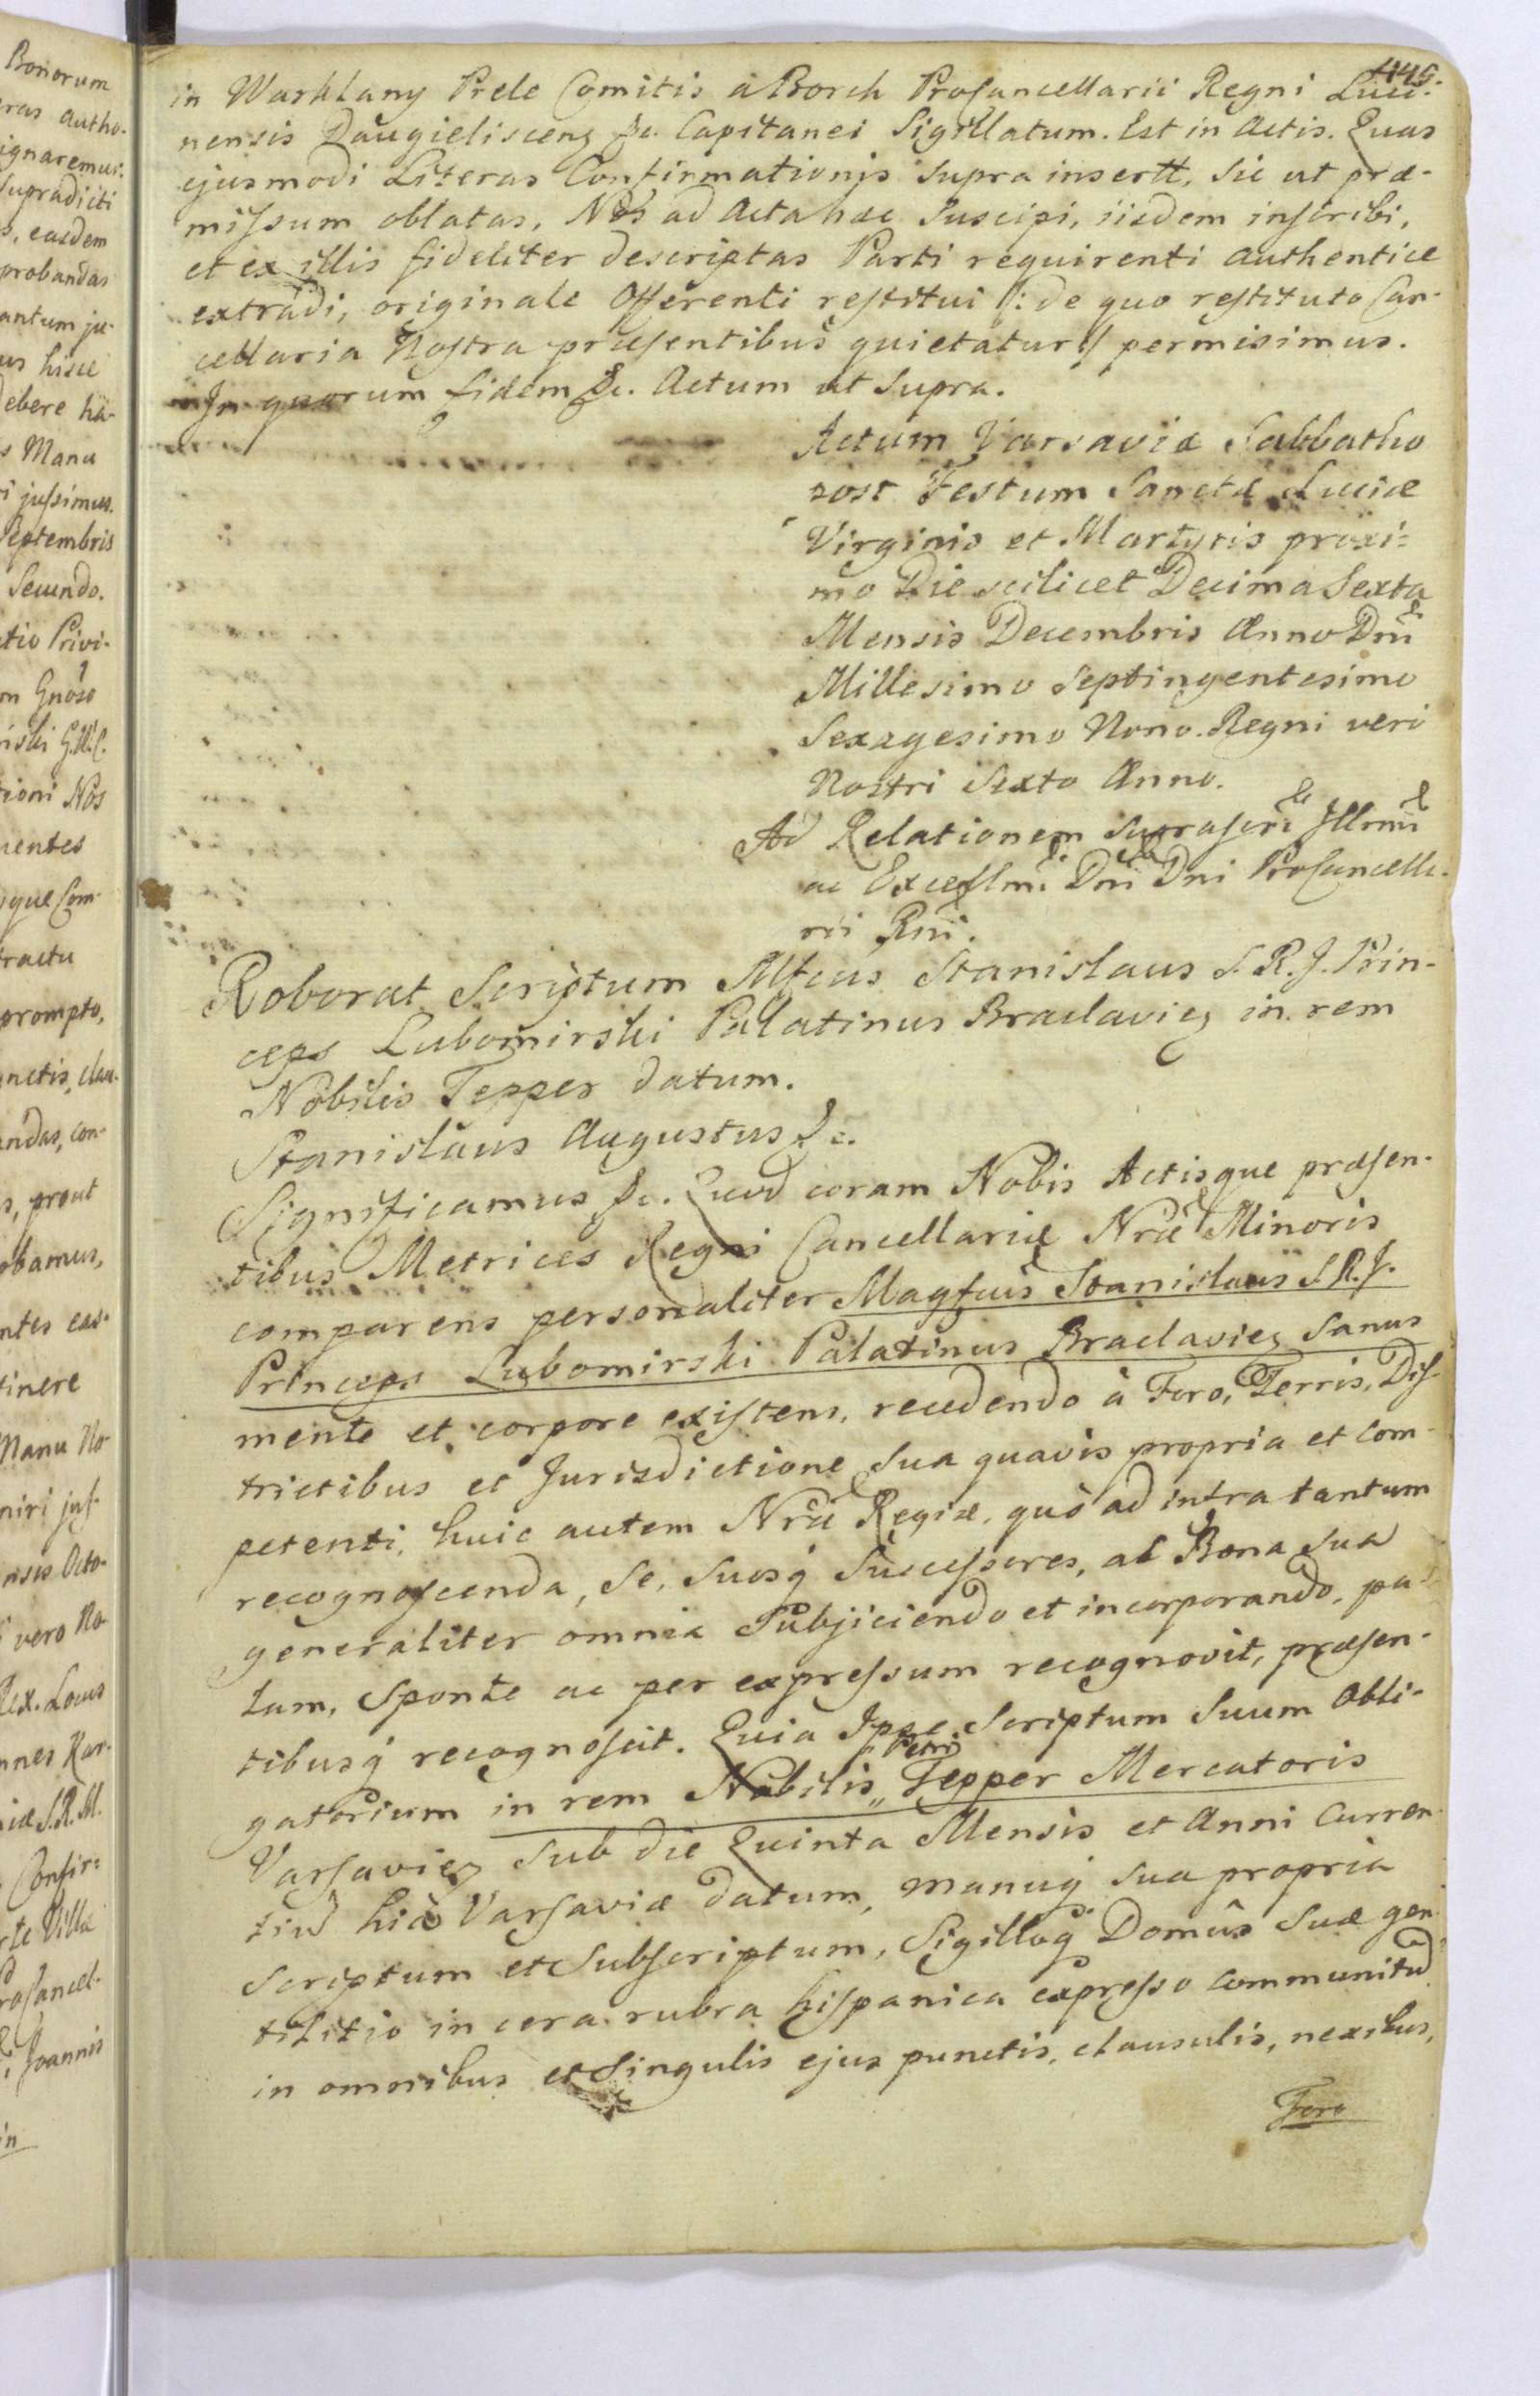 445.
in Warklany Prele Comitis à Borch Procancellarii Regni Luci-
nensis Daugieliscens &c. Capitanei Sigillatum. Est in Actis. Quas
ejusmodi Literas Confirmationis supra insertt, sic ut præ-
missum oblatas, Nos ad Acta hæc suscipi, iisdem inscribi,
et ex illis fideliter descriptas Parti requirenti authentice
extradi, originale Offerenti restitui /: de quo restituto Can-
cellaria Nostra præsentibus quietatur :/ permisimus.
In quorum fidem &c. Actum ut supra.
Actum Varsaviæ Sabbatho
post Festum Sanctæ Luciæ
Virginis et Martyris proxi-
mo Die scilicet Decima Sexta
Mensis Decembris Anno Dni
Millesimo Septingentesimo
Sexagesimo Nono. Regni veri
Nostri Sexto Anno.
Ad Relationem suprascri Illrmi
ac Excellmi Dni Dni Procancella-
rii Rni.
Roborat Scriptum Mfcus Stanislaus S. R. J. Prin-
ceps Lubomirski Palatinus Braclavies in rem
Nobilis Tepper datum.
Stanislaus Augustus &c.
Significamus &c. Quod coram Nobis Actisque præsen-
tibus Metrices Regni Cancellariæ Nræ Minoris
comparens personaliter Magfcus Stanislaus S. R. J.
Princeps Lubomirski Palatinus Braclavies Sanus
mente et corpore existens, recedendo à Foro, Terris, Dis-
trictibus et Jurisdictione sua quavis propria et com-
petenti, huic autem Nræ Regiæ, quò ad intra tantum
recognoscenda, Se, suosq Successores, ac Bona sua
generaliter omnia Subjiciendo et incorporando, pa-
lam, Sponte ac per expressum recognovit, præsen-
tibusq recognoscit. Quia Ipse Scriptum Suum Obli-
gatorium in rem Nobilis „ Petri Tepper Mercatoris
Varsavies sub die Quinta Mensis et Anni Curren-
tiu hic Varsaviæ datum, manuq sua propria
scriptum et Subscriptum, Sigilloq Domus Suæ gen-
tilitio in cera rubra hispanica expresso communitu
in omnibus et Singulis ejus punctis, clausulis, nexibus,
Foro